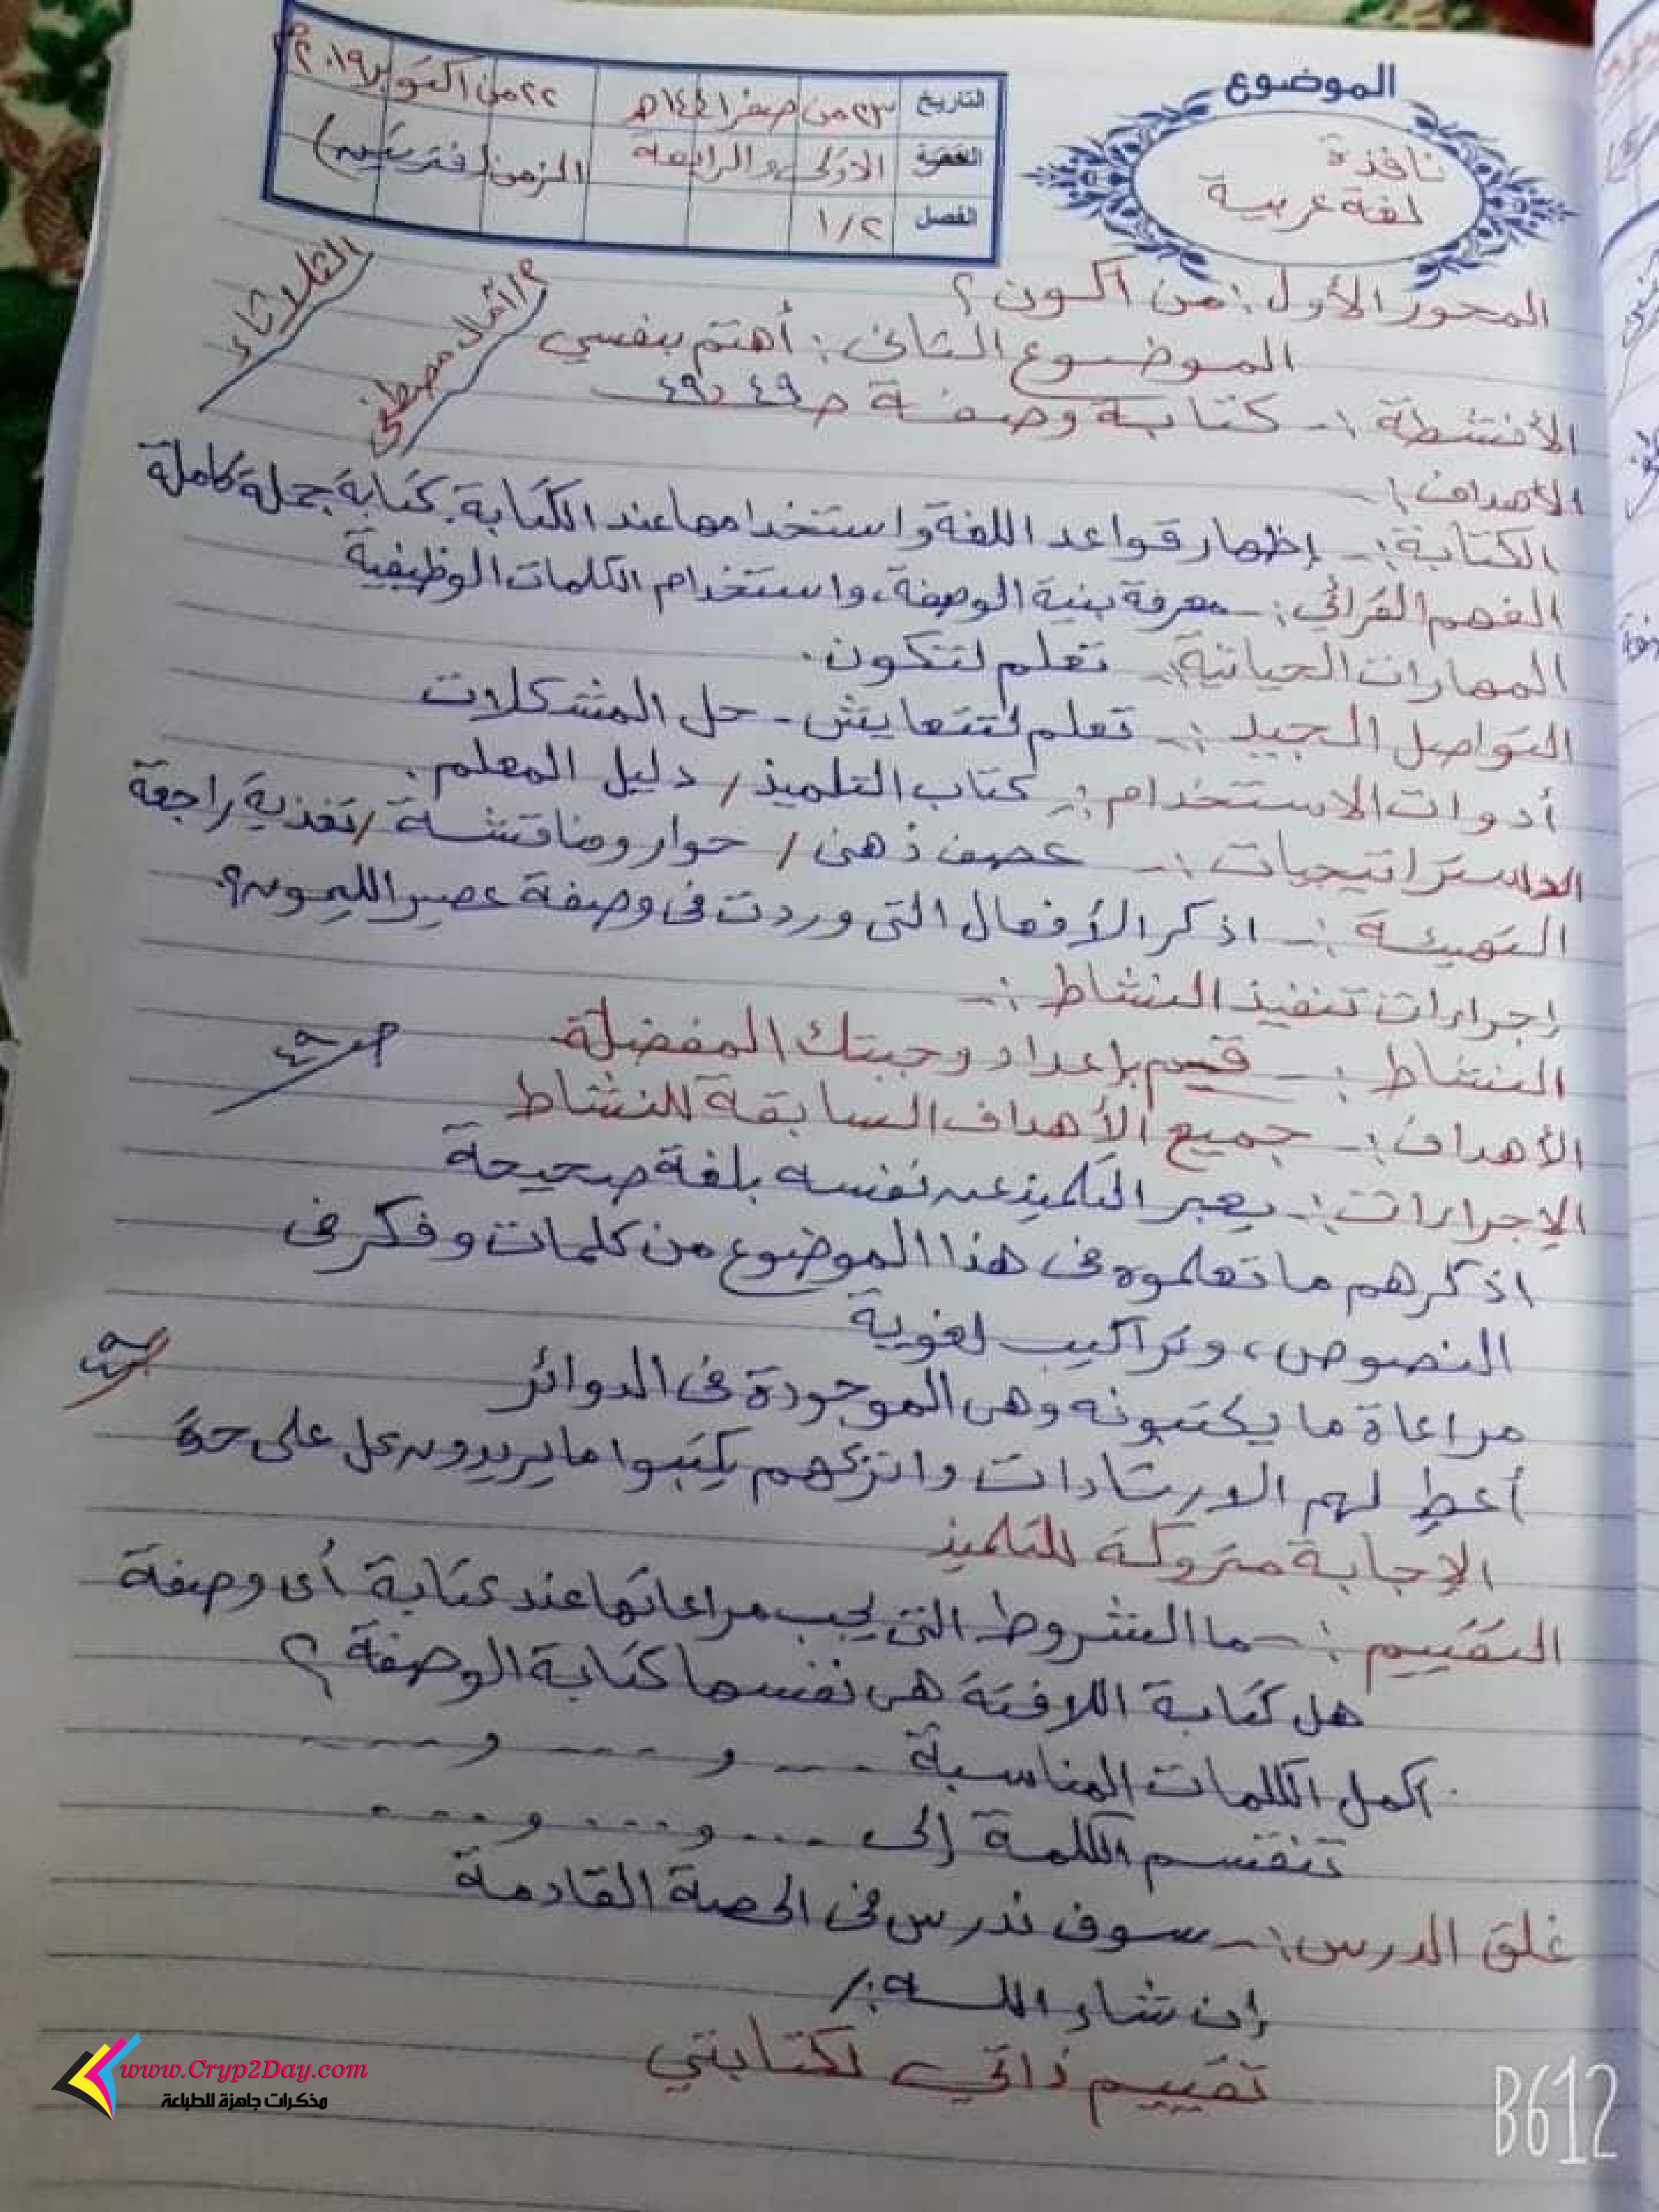 الموضوع
نافذة
لغة عربية
التاريخ ٢٣ من صفر ١٤٤١ هـ ٢٢ من أكتوبر ٢٠١٩ م
الفترة الأولى والرابعة الزمن (فترتين)
الفصل ١/٢
الثلاثاء
م/ آمال مصطفى
المحور الأول : من أكون ؟
الموضوع الثاني : أهتم بنفسي
الأنشطة :- كتابة وصفة ص ٤٩
الأهداف :-
الكتابة :- إظهار قواعد اللغة واستخدامها عند الكتابة. كتابة جملة كاملة
الفهم القرائي :- معرفة بنية الوصفة، واستخدام الكلمات الوظيفية
المهارات الحياتية :- تعلم لتكون.
التواصل الجيد :- تعلم لتتعايش - حل المشكلات
أدوات الاستخدام :- كتاب التلميذ / دليل المعلم.
الاستراتيجيات :- عصف ذهنى / حوار ومناقشة / تغذية راجعة
التهيئة :- اذكر الأفعال التى وردت فى وصفة عصير الليمون؟
إجراءات تنفيذ النشاط :-
النشاط :- قسم بإعداد وجبتك المفضلة
الأهداف :- جميع الأهداف السابقة للنشاط
الإجراءات :- يعبر التلميذ عن نفسه بلغة صحيحة
اذكرهم ما تعلموه فى هذا الموضوع من كلمات وفكر فى
النصوص، وتراكيب لغوية
مراعاة ما يكتبونه وهى الموجودة فى الدوائر
أعطِ لهم الارشادات واتركهم يكتبوا ما يريدون كل على حدة
الإجابة متروكة للتلميذ
التقييم :- ما الشروط التى يجب مراعاتها عند كتابة أى وصفة
هل كتابة اللافتة هى نفسها كتابة الوصفة ؟
أكمل الكلمات المناسبة .... و .... و ....
تنقسم الكلمة إلى .... و .... و ....
غلق الدرس :- سوف ندرس فى الحصة القادمة
إن شاء الله :/
تقييم ذاتي لكتابتي
www.Cryp2Day.com
مذكرات جاهزة للطباعة
B612